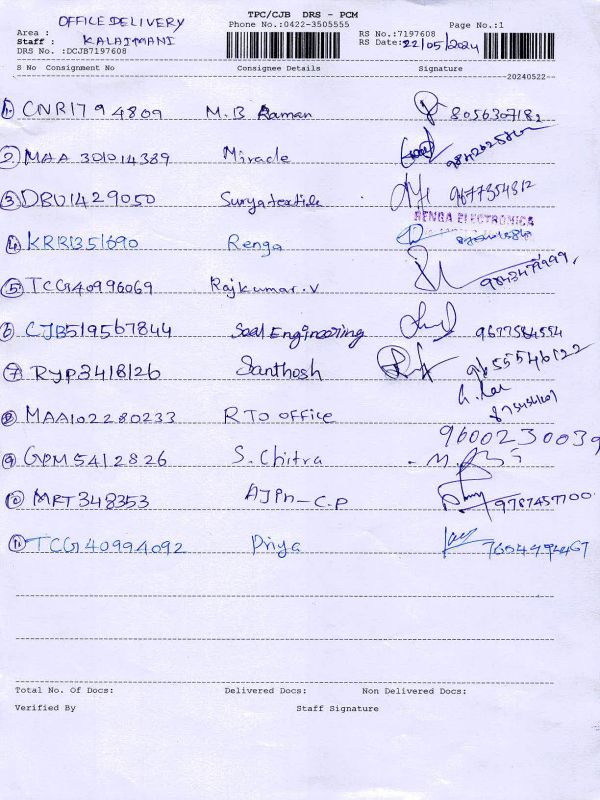 TPC/CJB DRS - PCM
OFFICE DELIVERY Phone No.:0422-3505555 Page No.:1
Area : RS No.:7197608
Staff : KALAIMANI RS Date: 22/05/2024
DRS No. :DCJB7197608
S No Consignment No Consignee Details Signature
20240522
1 CNR1794809 M.B Raman 8056307182
2 MAA 301014389 Miracle
3 DBU1429050 Surya textile 9677354812
RENGA ELECTRONICA
4 KRR1351690 Renga
5 TCG40996069 Rajkumar.V
6 CJB519567844 Seal Engineering 9677584554
7 RYP3418126 Santhosh 9655546122
8 MAA102280233 RTO office
9600230039
9 GPM5412826 S. Chitra
10 MRT348353 AJPh-C.P 9787457700
11 TCG40994092 Priya
Total No. Of Docs: Delivered Docs: Non Delivered Docs:
Verified By Staff Signature